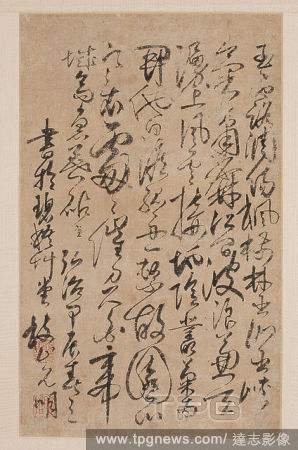 玉露凋傷楓樹林巫山巫峽
氣蕭森江間波浪兼天
湧塞上風雲接地陰叢菊兩
開他日淚孤舟一繫故園心
寒衣處處催刀尺白帝
城高急暮砧 弘治甲
書於碧梧艸堂 枝山允明
TPG
www.tpgnews.com / 達志影像